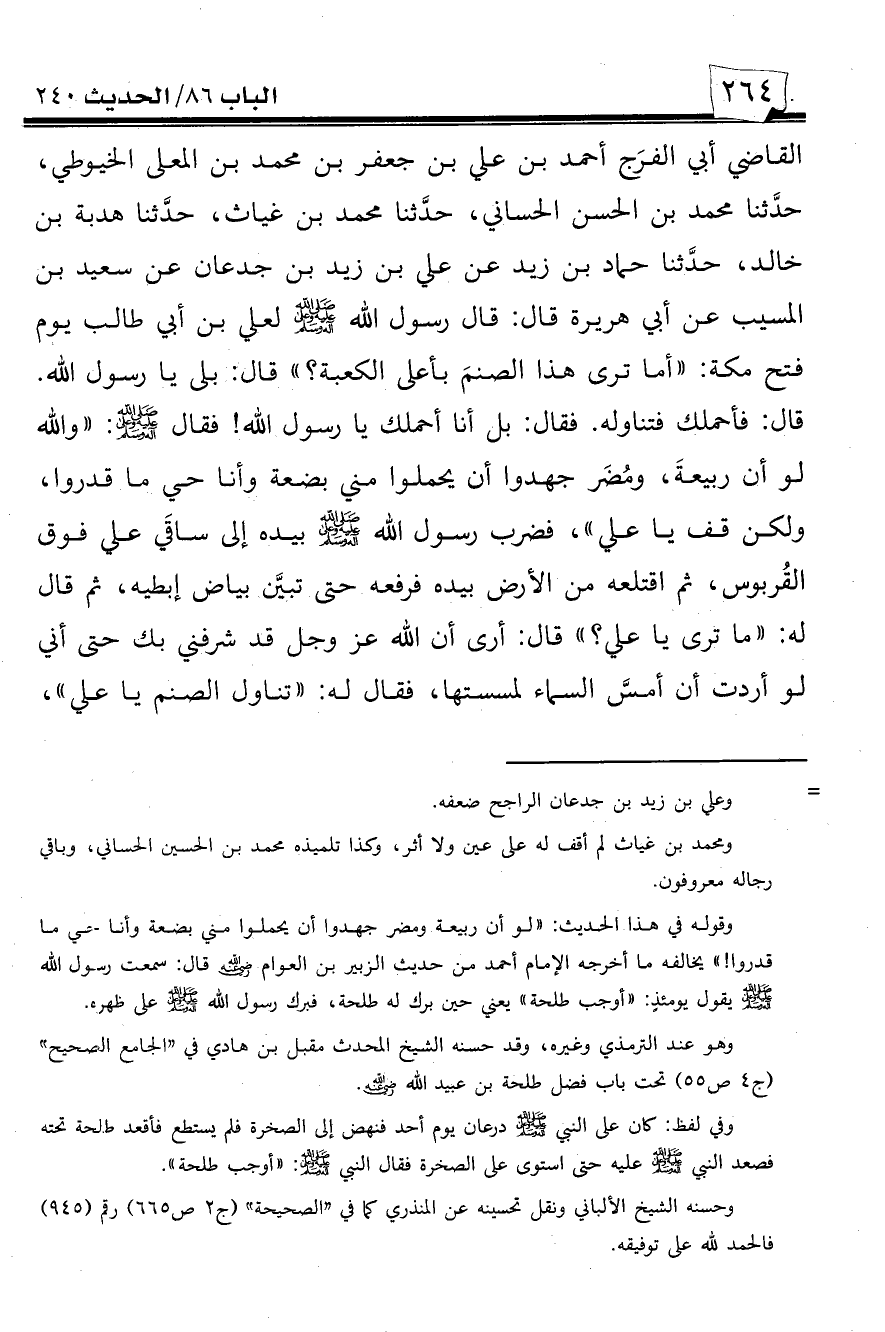 ٢٦٤
الباب ٨٦/ الحديث ٢٤٠
القاضي أبي الفرَج أحمد بن علي بن جعفر بن محمد بن المعلى الخيوطي،
حدَّثنا محمد بن الحسن الحساني، حدَّثنا محمد بن غياث، حدَّثنا هدبة بن
خالد، حدَّثنا حماد بن زيد عن علي بن زيد بن جدعان عن سعيد بن
المسيب عن أبي هريرة قال: قال رسول الله ﷺ لعلي بن أبي طالب يوم
فتح مكة: «أما ترى هذا الصنمَ بأعلى الكعبة؟» قال: بلى يا رسول الله.
قال: فأحملك فتناوله. فقال: بل أنا أحملك يا رسول الله! فقال ﷺ: «والله
لو أن ربيعةَ، ومُضَر جهدوا أن يحملوا مني بضعة وأنا حي ما قدروا،
ولكن قف يا علي»، فضرب رسول الله ﷺ بيده إلى ساقَي علي فوق
القُربوس، ثم اقتلعه من الأرض بيده فرفعه حتى تبيَّن بياض إبطيه، ثم قال
له: «ما ترى يا علي؟» قال: أرى أن الله عز وجل قد شرفني بك حتى أني
لو أردت أن أمسَّ السماء لمسستها، فقال له: «تناول الصنم يا علي»،
= وعلي بن زيد بن جدعان الراجح ضعفه.
ومحمد بن غياث لم أقف له على عين ولا أثر، وكذا تلميذه محمد بن الحسين الحساني، وباقي
رجاله معروفون.
وقوله في هذا الحديث: «لو أن ربيعة ومضر جهدوا أن يحملوا مني بضعة وأنا حي ما
قدروا!» يخالفه ما أخرجه الإمام أحمد من حديث الزبير بن العوام رضي الله عنه قال: سمعت رسول الله
ﷺ يقول يومئذٍ: «أوجب طلحة» يعني حين برك له طلحة، فبرك رسول الله ﷺ على ظهره.
وهو عند الترمذي وغيره، وقد حسنه الشيخ المحدث مقبل بن هادي في "الجامع الصحيح"
(ج٤ ص٥٥) تحت باب فضل طلحة بن عبيد الله رضي الله عنه.
وفي لفظ: كان على النبي ﷺ درعان يوم أحد فنهض إلى الصخرة فلم يستطع فأقعد طلحة تحته
فصعد النبي ﷺ عليه حتى استوى على الصخرة فقال النبي ﷺ: «أوجب طلحة».
وحسنه الشيخ الألباني ونقل تحسينه عن المنذري كما في "الصحيحة" (ج٢ ص٦٦٥) رقم (٩٤٥)
فالحمد لله على توفيقه.